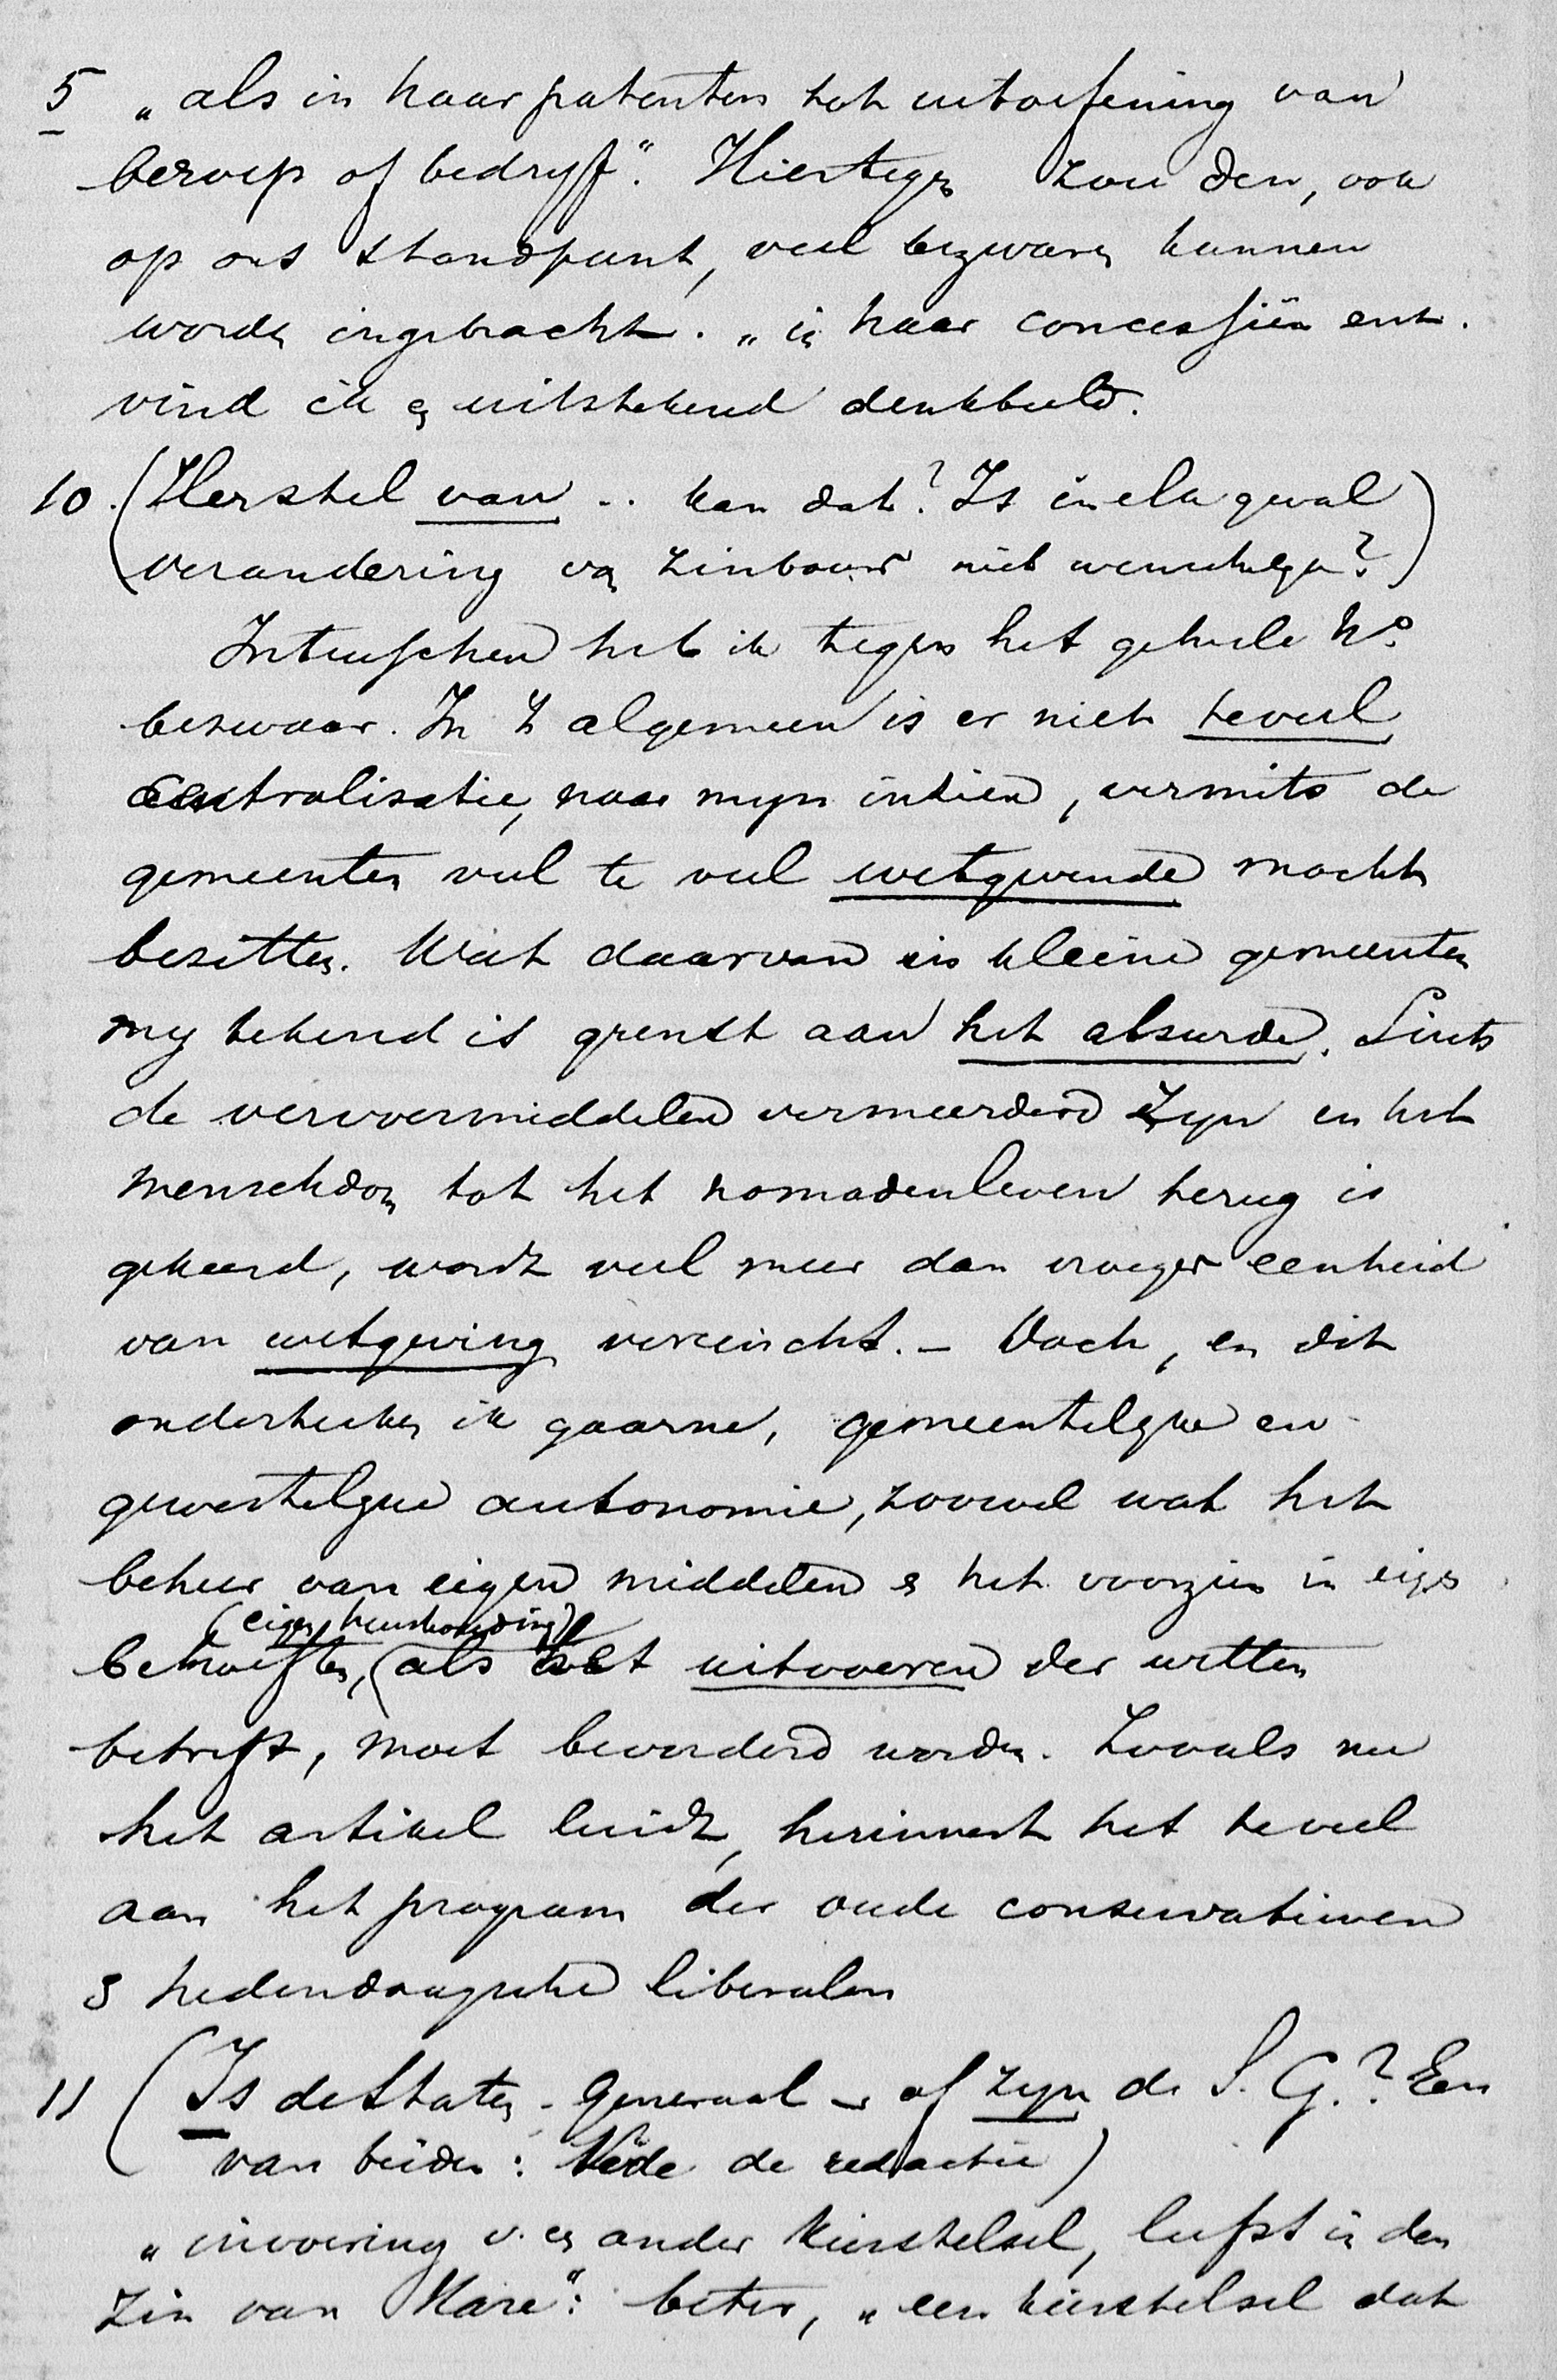 5 „als in haar patenten tot uitoefening van
beroep of bedryf". Hiertegen zouden, ook
op ons standpunt, veel bezwaren kunnen
worden ingebracht. „in haar concessiën enz.
vind ik een uitstekend denkbeeld.
10. (Herstel van .. kan dat? Is in elk geval
verandering van zinbouw niet wenschelyk?)
Intusschen heb ik tegen het geheele No
bezwaar. In 't algemeen is er niet teveel
centralisatie, naar myn inzien, vermits de
gemeenten veel te veel wetgevende macht
bezitten. Wat daarvan in kleine gemeenten
my bekend is grenst aan het absurde. Sints
de vervoermiddelen vermeerderd zyn en het
menschdom tot het nomadenleven terug is
gekeerd, wordt veel meer dan vroeger eenheid
van wetgeving vereischt. – Doch, en dit
onderteeken ik gaarne, gemeentelyke en
gewestelyke autonomie, zoowel wat het
beheer van eigen middelen & het voorzien in eigen
(eigen huishouding)
behoeften, als het uitvoeren der wetten
betreft, moet bevorderd worden. Zooals nu
het artikel luidt, herinnert het teveel
aan het program der oude conservatieven
& hedendaagsche liberalen
11 (Is de Staten-Generaal – of zyn de S. G.? Een
van beiden: Vide de redactie)
„invoering v. een ander kiesstelsel, liefst in den
zin van Hare": beter, „een kiesstelsel dat